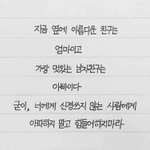 지금 옆에 아름다운 친구는
엄마이고
가장 멋있는 남자친구는
아빠이다
굳이, 너에게 신경쓰지 않는 사람에게
아파하지 말고 힘들어하지마라